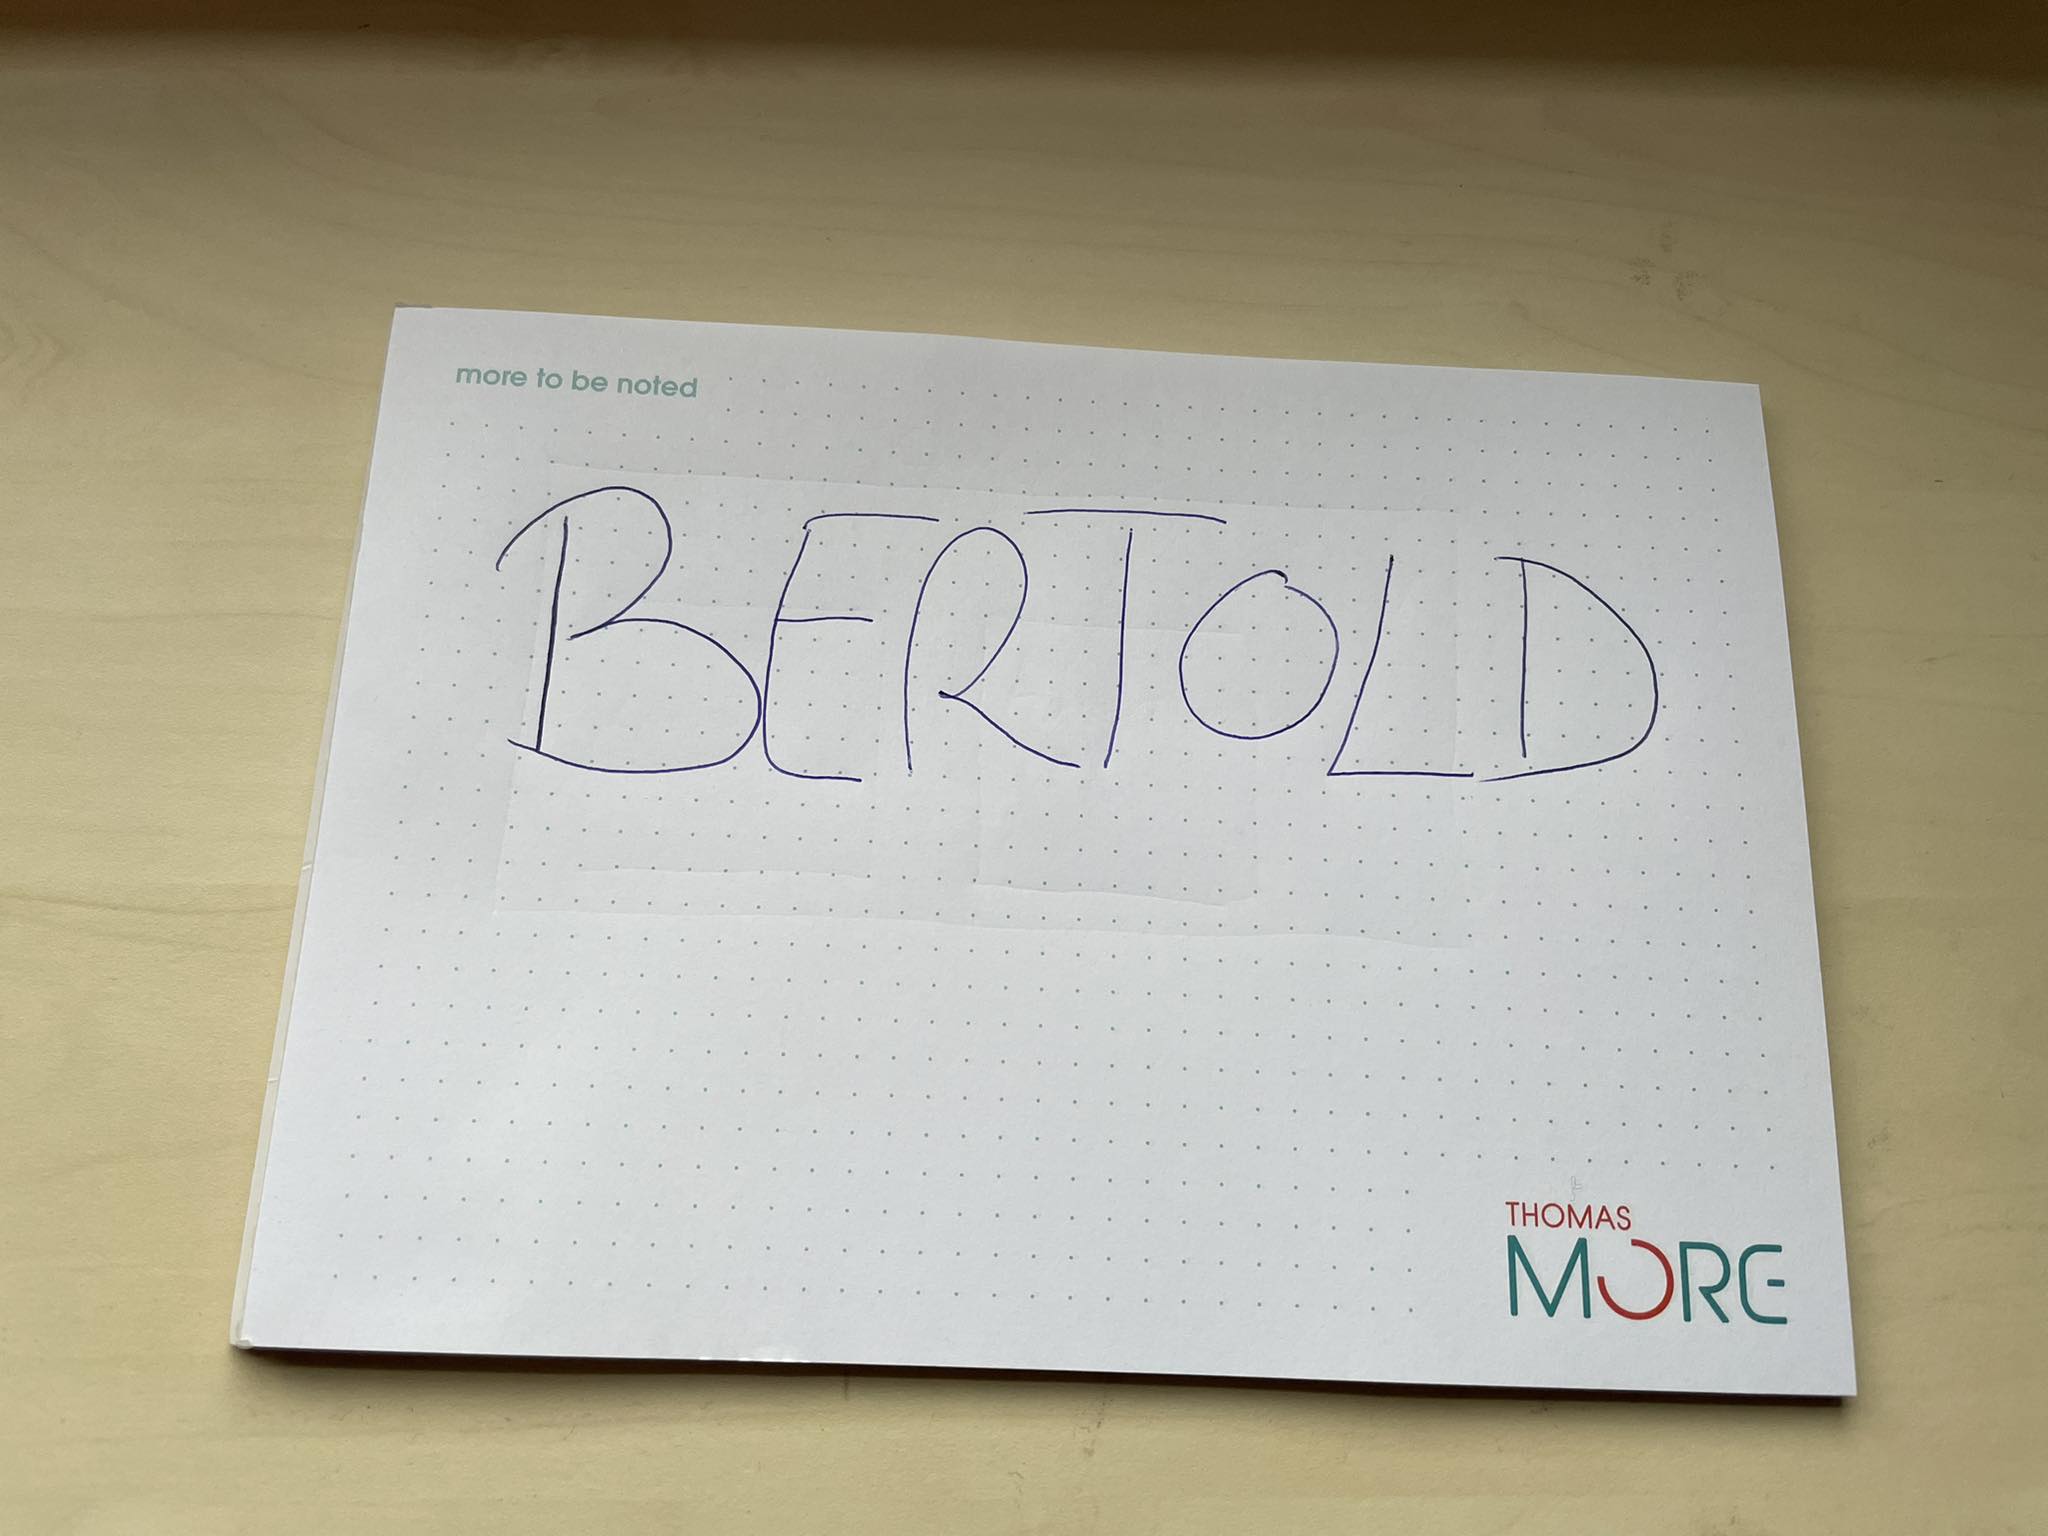 more to be noted
BERTOLD
THOMAS
MORE